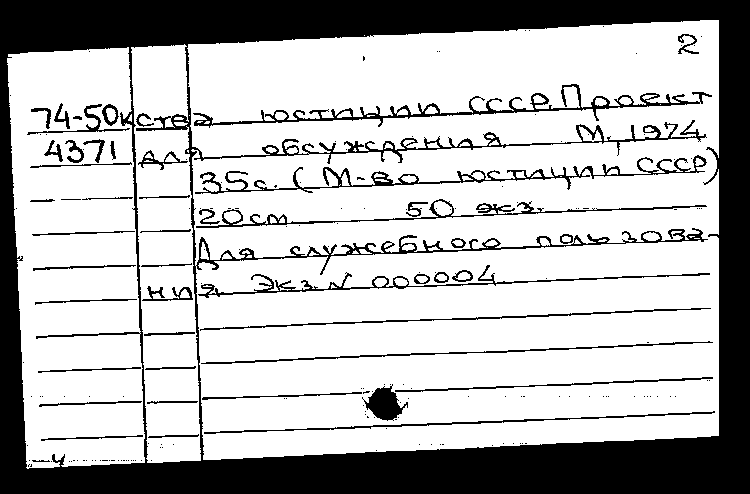 2
74-50кства юстиции СССР. Проект
4371 для обсуждения. М., 1974
35с. (М-во юстиции СССР)
20см 50 экз.
Для служебного пользова-
ния. Экз. N 000004
ч